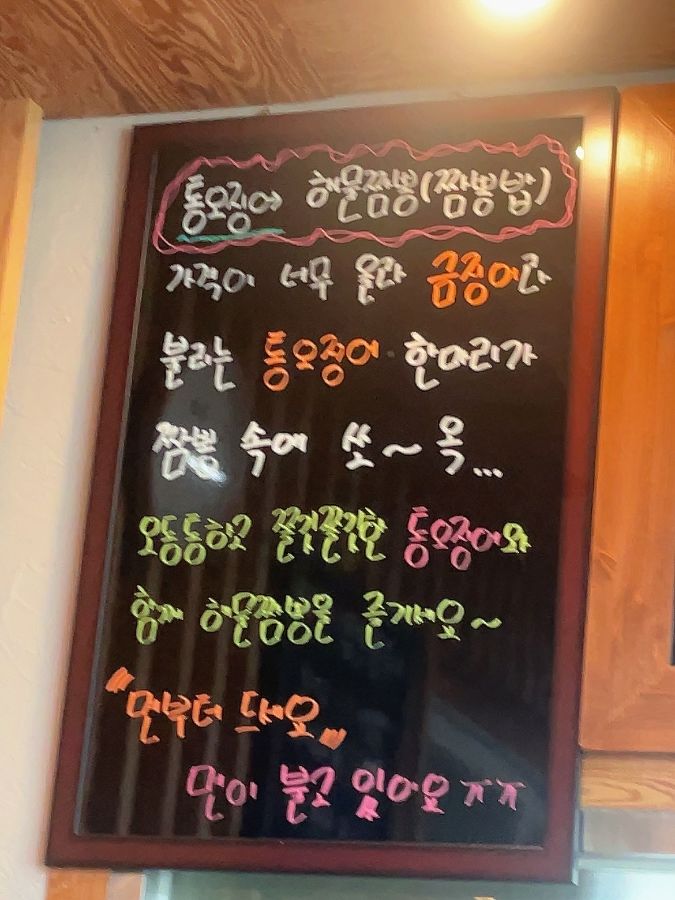 통오징어 해물짬뽕(짬뽕밥)
가격이 너무 올라 금징어라
불리는 통오징어 한마리가
짬뽕 속에 쏘~옥...
오동통하고 쫄깃쫄깃한 통오징어와
함께 해물짬뽕을 즐기세요~
"면부터 드세요"
면이 불고 있어요 ㅠㅠ